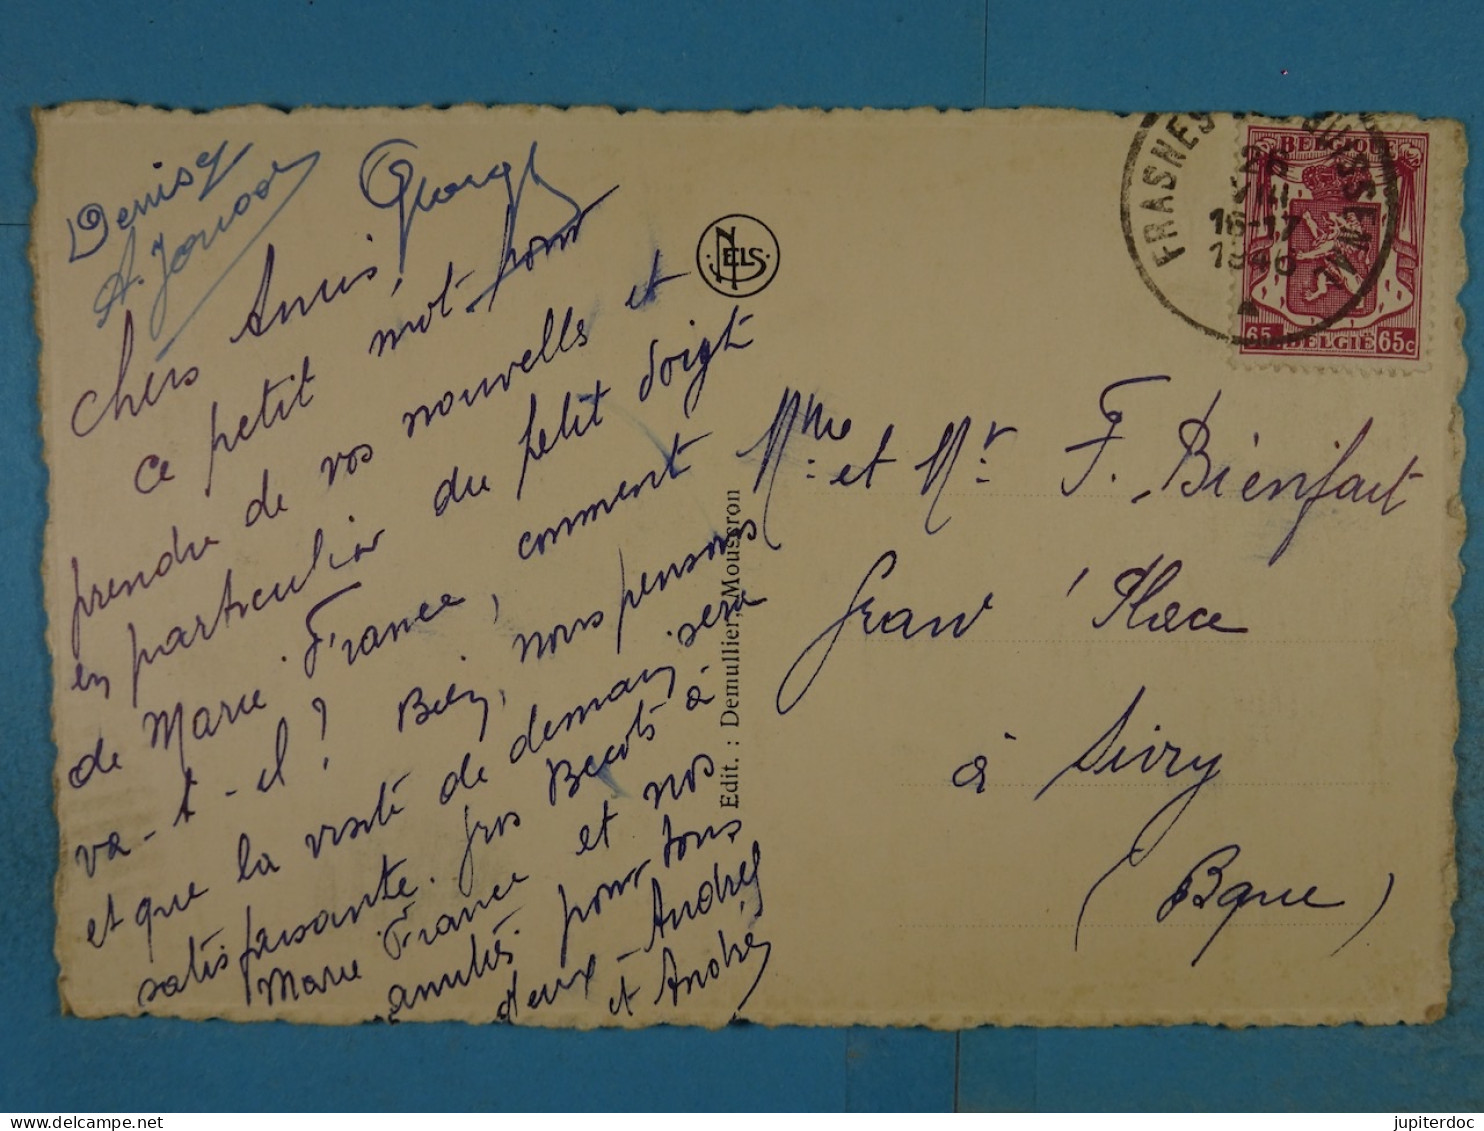 Denise
A. Jouoo
Georges
Chers Amis,
ce petit mot pour
prendre de vos nouvelles et
en particulier du petit doigt
de Marie-France, comment
va-t-il ? Bien, nous pensons
et que la visite de demain sera
satisfaisante. Gros Becots à
Marie France et nos
amitiés pour tous
deux - Andrée
et André
NELS
Edit. : Demullier, Mouscron
FRASNES BUISSENAL
16-17
1946
BELGIQUE
65 BELGIË 65c
Mme et Mr F. Bienfait
Grand'Place
à Sivry
(Bque)
jupiterdoc